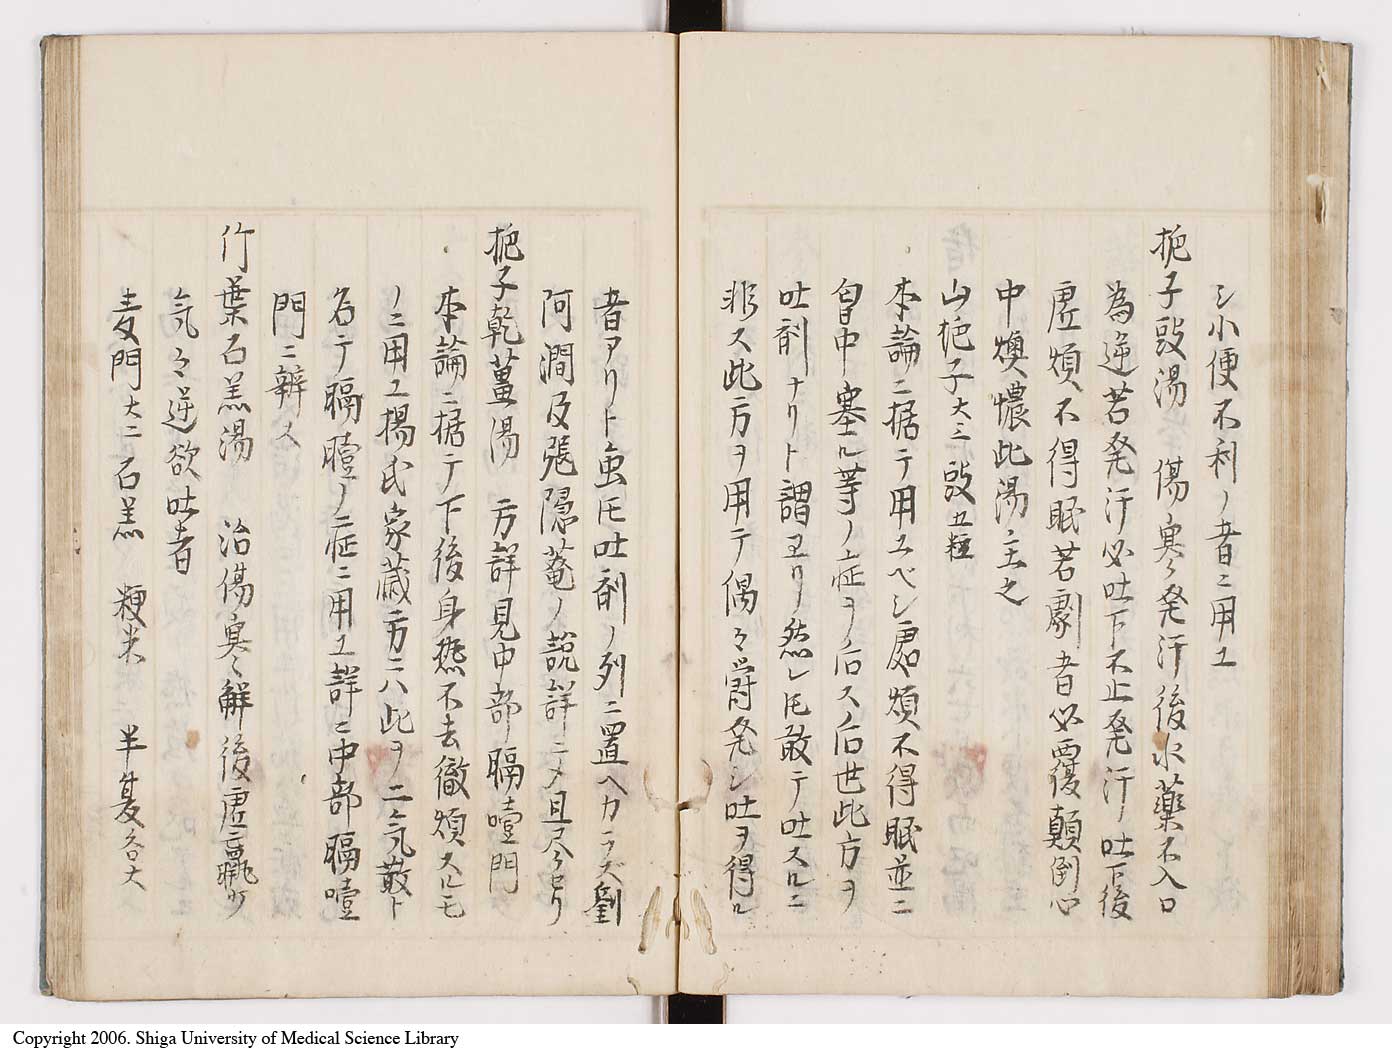 シ小便不利ノ者ニ用ユ
梔子豉湯　傷寒発汗後水薬不入口
為逆若発汗必吐下不止発汗ノ吐下後
虚煩不得眠若劇者必覆顛倒心
中燠憹此湯主之
山梔子大三　豉五粒
本論ニ据テ用ユベシ虚煩不得眠並ニ
胷中塞ル等ノ症ヲノ后ス后世此方ヲ
吐剤ナリト謂ヱリ然レ𪜈敢テ吐スルニ
非ス此方ヲ用テ偶々欝発シ吐ヲ得ル
者アリト虽𪜈吐剤ノ列ニ置ヘカラズ劉
阿澗及張隠菴ノ説詳ニメ且尽セリ
梔子乾薑湯　方詳見中部膈噎門
本論ニ据テ下後身𤍠不去微煩スルモ
ノニ用ユ楊氏家蔵方ニハ此ヲノ二気散ト
名テ膈噎ノ症ニ用ユ詳ニ中部膈噎
門ニ辨ス
竹葉石羔湯　治傷寒解後虚羸少
気々逆欲吐者
麦門大二石羔　粳米　半夏各大